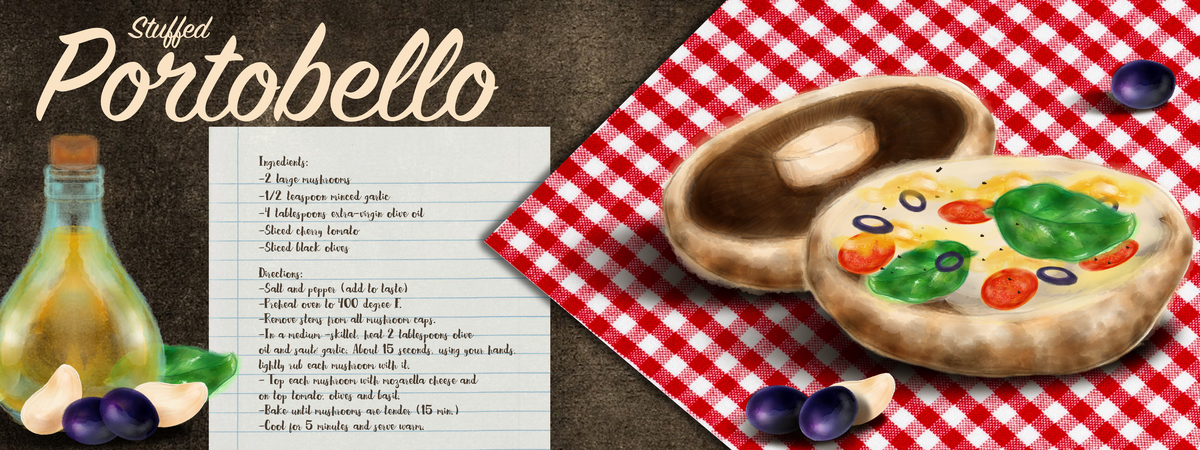 Stuffed
Portobello
Ingredients:
-2 large mushrooms
-1/2 teaspoon minced garlic
-4 tablespoons extra-virgin olive oil
-Sliced cherry tomato
-Sliced black olives
Directions:
-Salt and pepper (add to taste)
-Preheat oven to 400 degree F.
-Remove stems from all mushroom caps.
-In a medium -skillet, heat 2 tablespoons olive
oil and saute garlic. About 15 seconds, using your hands,
lightly rub each mushroom with it.
- Top each mushroom with mozarella cheese and
on top tomato, olives and basil.
-Bake until mushrooms are tender (15 min.)
-Cool for 5 minutes and serve warm.